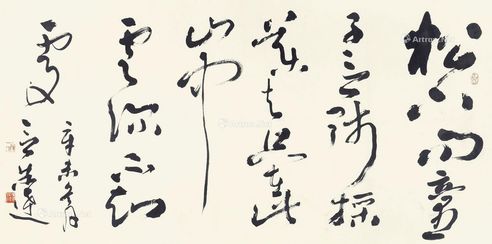 松下问童
子言师採
药去只在此
山中
雲深不知
处
辛未冬月